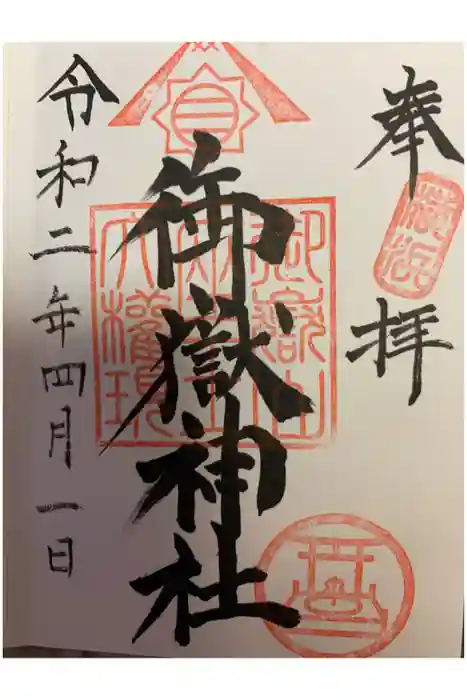 奉拝
御嶽神社
御嶽山
大権現
令和二年四月一日